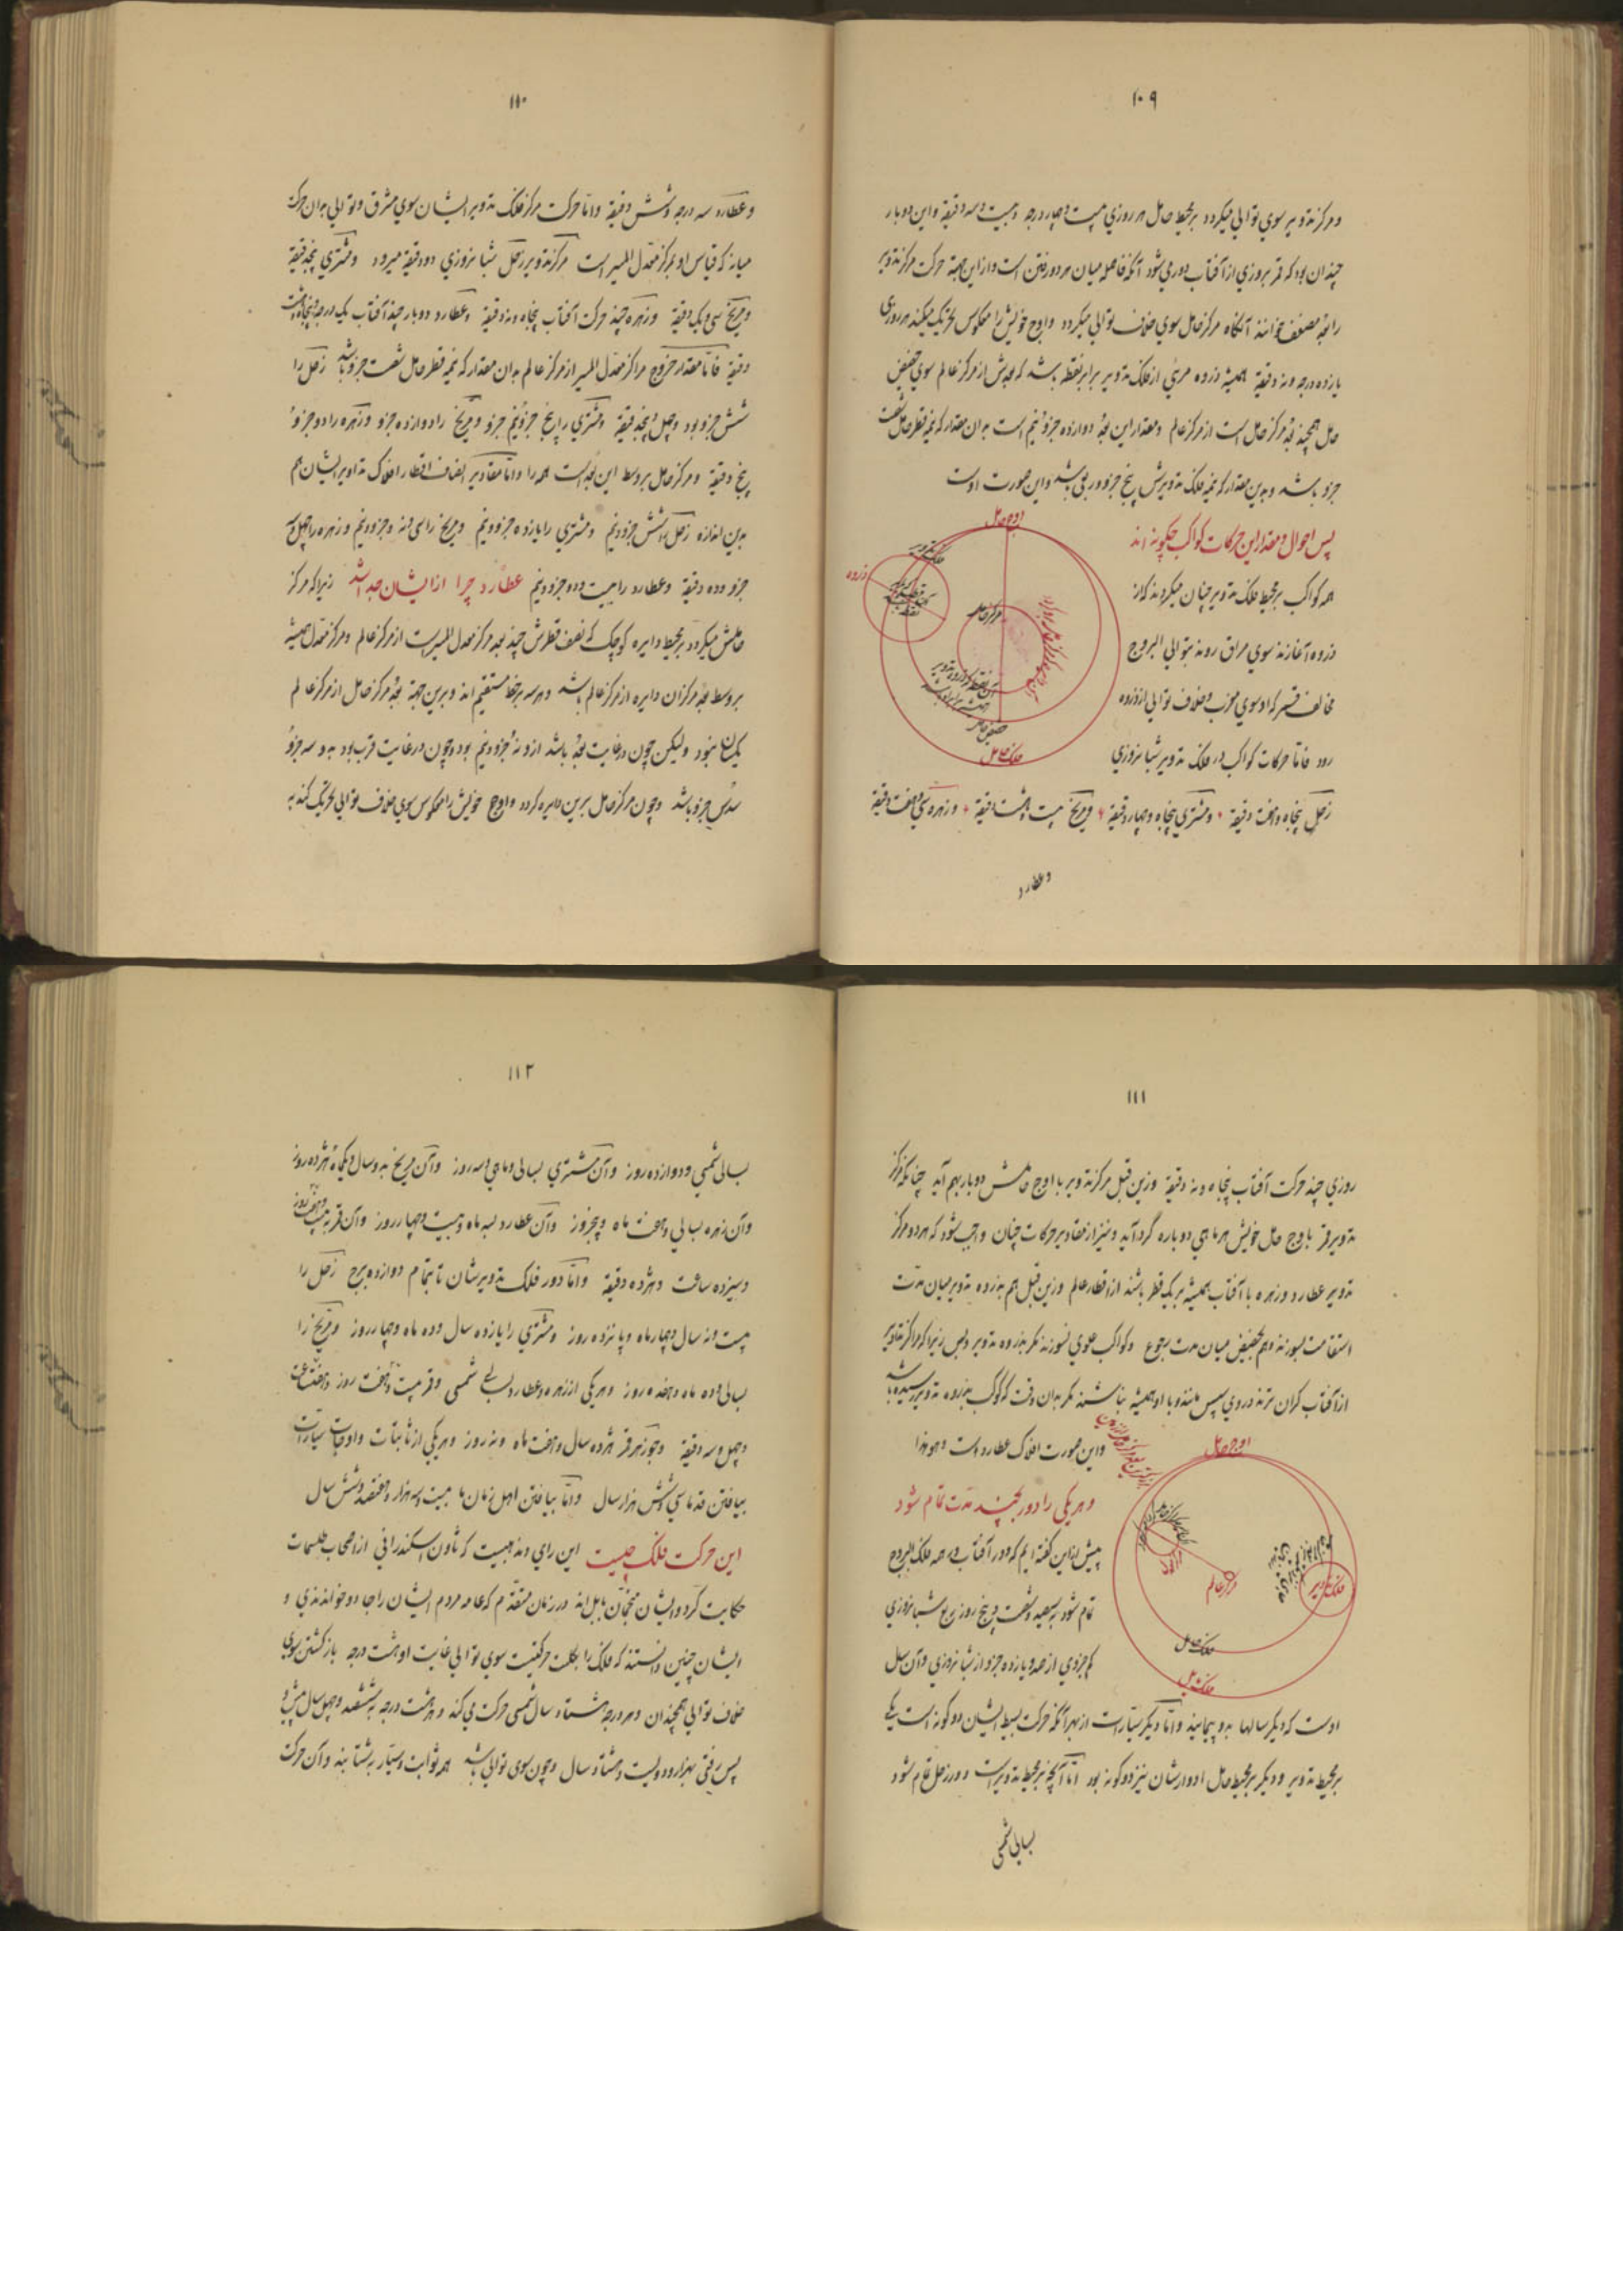 ۱۰۹
و مرکز تدویر سوی توالی میگردد بر محیط حامل هر روزی بیست و چهار درجه و بیست و سه دقیقة و این دو بار
چندان بود که قمر بروزی از آفتاب دور می شود آنگه فاصله میان هر دو رفتن است و از این جهة حرکت مرکز تدویر
را بعد مضعف خوانند آنگاه مرکز حامل سوی خلاف توالی میگردد و اوج خویش را معکوس تحریک میکند هر روزی
یازده درجه و نه دقیقة همیشه و ذروه مرئی از فلک تدویر برابر نقطه باشد که بعدش از مرکز عالم سوی حضیض
حامل همچند بعد مرکز حامل است از مرکز عالم و مقدار این بعد دوازده جزو و نیم است بدان مقدار که نیمه قطر حامل شصت
جزو باشد و بدین مقدار که نیمه فلک تدویرش پنج جزو و ربعی باشد و این صورت اوست
اوج حامل
پس احوال و مقدار این حرکات کواکب چگونه اند
فلک تدویر
ذروه
همه کواکب بر محیط فلک تدویر چنان میگردند که از
مرکز حامل
ذروه آغازند سوی مشرق روند بتوالی البروج
مخالف قمر که او سوی مغرب و خلاف توالی از ذروه
حضیض حامل
رود فاما حرکات کواکب در فلک تدویر شبانروزی
فلک حامل
زحل پنجاه و هفت دقیقة و مشتری پنجاه و چهار دقیقة و مریخ بیست و هشت دقیقة و زهره سی و هفت دقیقة
و عطارد
۱۱۰
و عطارد سه درجه و شش دقیقة و اما حرکت مرکز فلک تدویر ایشان سوی مشرق و توالی بدان حرکت
میانه که قیاس او بمرکز معدل المسیر است مرکز تدویر زحل شبانروزی دو دقیقة میرود و مشتری پنج دقیقة
و مریخ سی و یک دقیقة و زهره چند حرکت آفتاب پنجاه و نه دقیقة و عطارد دو بار چند آفتاب یک درجه و پنجاه و هشت
دقیقة فاما مقدار خروج مراکز معدل المسیر از مرکز عالم بدان مقدار که نیمه قطر حامل شصت جزو باشد زحل را
شش جزو بود و چهل و پنج دقیقة و مشتری را پنج جزو و نیم جزو و مریخ را دوازده جزو و زهره را دو جزو
پنج دقیقة و مرکز حامل بر وسط این بعد است همه را و اما مقادیر انصاف اقطار افلاک تداویر ایشان هم
بدین اندازه زحل را شش جزو و نیم و مشتری را یازده جزو و نیم و مریخ را سی و نه جزو و نیم و زهره را چهل و سه
جزو و ده دقیقة و عطارد را بیست و دو جزو و نیم عطارد چرا از ایشان جدا شد زیرا که مرکز
حاملش میگردد بر محیط دایره کوچک که نصف قطرش چند بعد مرکز معدل المسیر است از مرکز عالم و مرکز معدل همیشه
بر وسط بعد مرکز آن دایره از مرکز عالم باشد و هر سه بر خط مستقیم اند و برین جهة بعد مرکز حامل از مرکز عالم
یکسان نبود ولیکن چون در غایت بعد باشد ازو نه جزو و نیم بود و چون در غایت قرب بود بدو سه جزو
سدس جزو باشد و چون مرکز حامل برین دایره گردد و اوج خویش را معکوس سوی خلاف توالی تحریک کند به
۱۱۱
روزی چند حرکت آفتاب پنجاه و نه دقیقة و زین قبل مرکز تدویر با اوج حاملش دو بار بهم آید چنانکه مرکز
تدویر قمر با اوج حامل خویش هر ماهی دو باره گرد آید و نیز از مقادیر حرکات چنان واجب شود که هر دو مرکز
تدویر عطارد و زهره با آفتاب همیشه بر یک قطر باشند از اقطار عالم و زین قبل هم بذروه تدویر میان مدت
استقامت بسوزند و هم بحضیض میان مدت رجوع و کواکب علوی نسوزند مگر بذروه تدویر و بس زیرا که مراکز تداویر
از آفتاب گران ترند در روی سپس مانند و با او همیشه نباشند مگر بدان وقت که کوکب بذروه تدویر رسیده باشد
و این صورت افلاک عطارد است و هو هذا
اوج حامل
و هر یکی را دور بچند مدت تمام شود
پیش از این گفته ایم که دور آفتاب در همه فلک البروج
فلک تدویر
مرکز عالم
تمام شود بسیصد و شصت و پنج روز و ربع شبانروزی
فلک حامل
کم جزوی از صد و یازده جزو از شبانروزی و آن سال
اوست که دیگر سالها بدو پیمایند و اما دیگر سیارات از بهر آنکه حرکت بسیط ایشان دو گونه است یکی
بر محیط تدویر و دیگر بر محیط حامل ادوارشان نیز دو گونه بود اما آنچه بر محیط تدویر است دور زحل تمام شود
بسالی شمسی
۱۱۲
بسالی شمسی و دوازده روز و آن مشتری بسالی و ماهی و سه روز و آن مریخ بدو سال و یکماه و هژده روز
و آن زهره بسالی و هفت ماه و پنجروز و آن عطارد بسه ماه و بیست و چهار روز و آن قمر به بیست و هفت روز
و سیزده ساعت و هژده دقیقة و اما دور فلک تدویرشان تا بتمام دوازده برج زحل را
بیست و نه سال و چهار ماه و پانزده روز و مشتری را یازده سال و ده ماه و چهار روز و مریخ را
بسالی و ده ماه و هفده روز و هر یکی از زهره و عطارد بسالی شمسی و قمر بیست و هفت روز و هفت ساعت
و چهل و سه دقیقة و جوزهر قمر هژده سال و هفت ماه و نه روز و هر یکی از ثابتات و اوجات سیارات
بیافتن قدما سی و شش هزار سال و اما بیافتن اهل زمان ما بیست و سه هزار و هفتصد و شش سال
این حرکت فلک چیست این رای و مذهبیست که ثاون اسکندرانی از اصحاب طلسمات
حکایت کرد و ایشان منجمان بابل اند در زمان متقدم که عامه مردم ایشان را جادو خواندندی و
ایشان چنین دانستند که فلک را بکلیت حرکتیست سوی توالی غایت او هشت درجه باز گشتن سوی
خلاف توالی همچندان و هر درجه بهشتاد سال شمسی حرکت می کند و هشت درجه بششصد و چهل سال پیش و
پس رفتن بهزار و دویست و هشتاد سال و چون سوی توالی باشد همه ثوابت و سیار بشتابند و آن حرکت